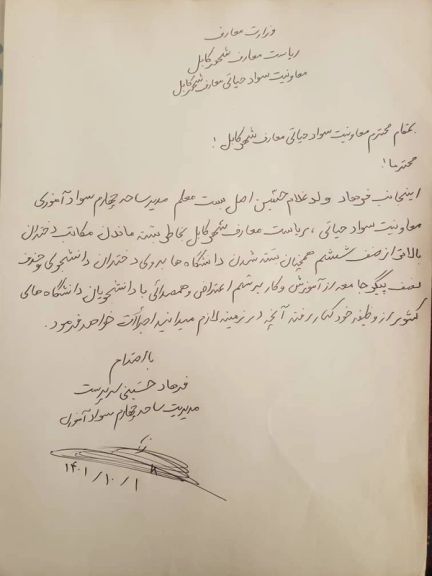 وزارت معارف
ریاست معارف شهر کابل
معاونیت سواد حیاتی معارف شهر کابل
بمقام محترم معاونیت سواد حیاتی معارف شهر کابل!
محترما!
اینجانب فرهاد ولد غلام حسین اصل بست معلم مدیر ساحه چهارم سوادآموزی
معاونیت سواد حیاتی، ریاست معارف شهر کابل بخاطر بسته ماندن مکاتب دختران
بالاتر از صنف ششم همچنان بسته شدن دانشگاه ها بروی دختران دانشجوی و حذف
نصف پیکر جامعه از آموزش و کار به رسم اعتراض و همصدائی با دانشجویان دانشگاه های
کشور از وظیفه خود کنار رفته آنچه در زمینه لازم میدانید اجراآت خواهد فرمود.
با احترام
فرهاد حسینی سرپرست
مدیریت ساحه چهارم سوادآموزی
۱۴۰۱/۱۰/۱